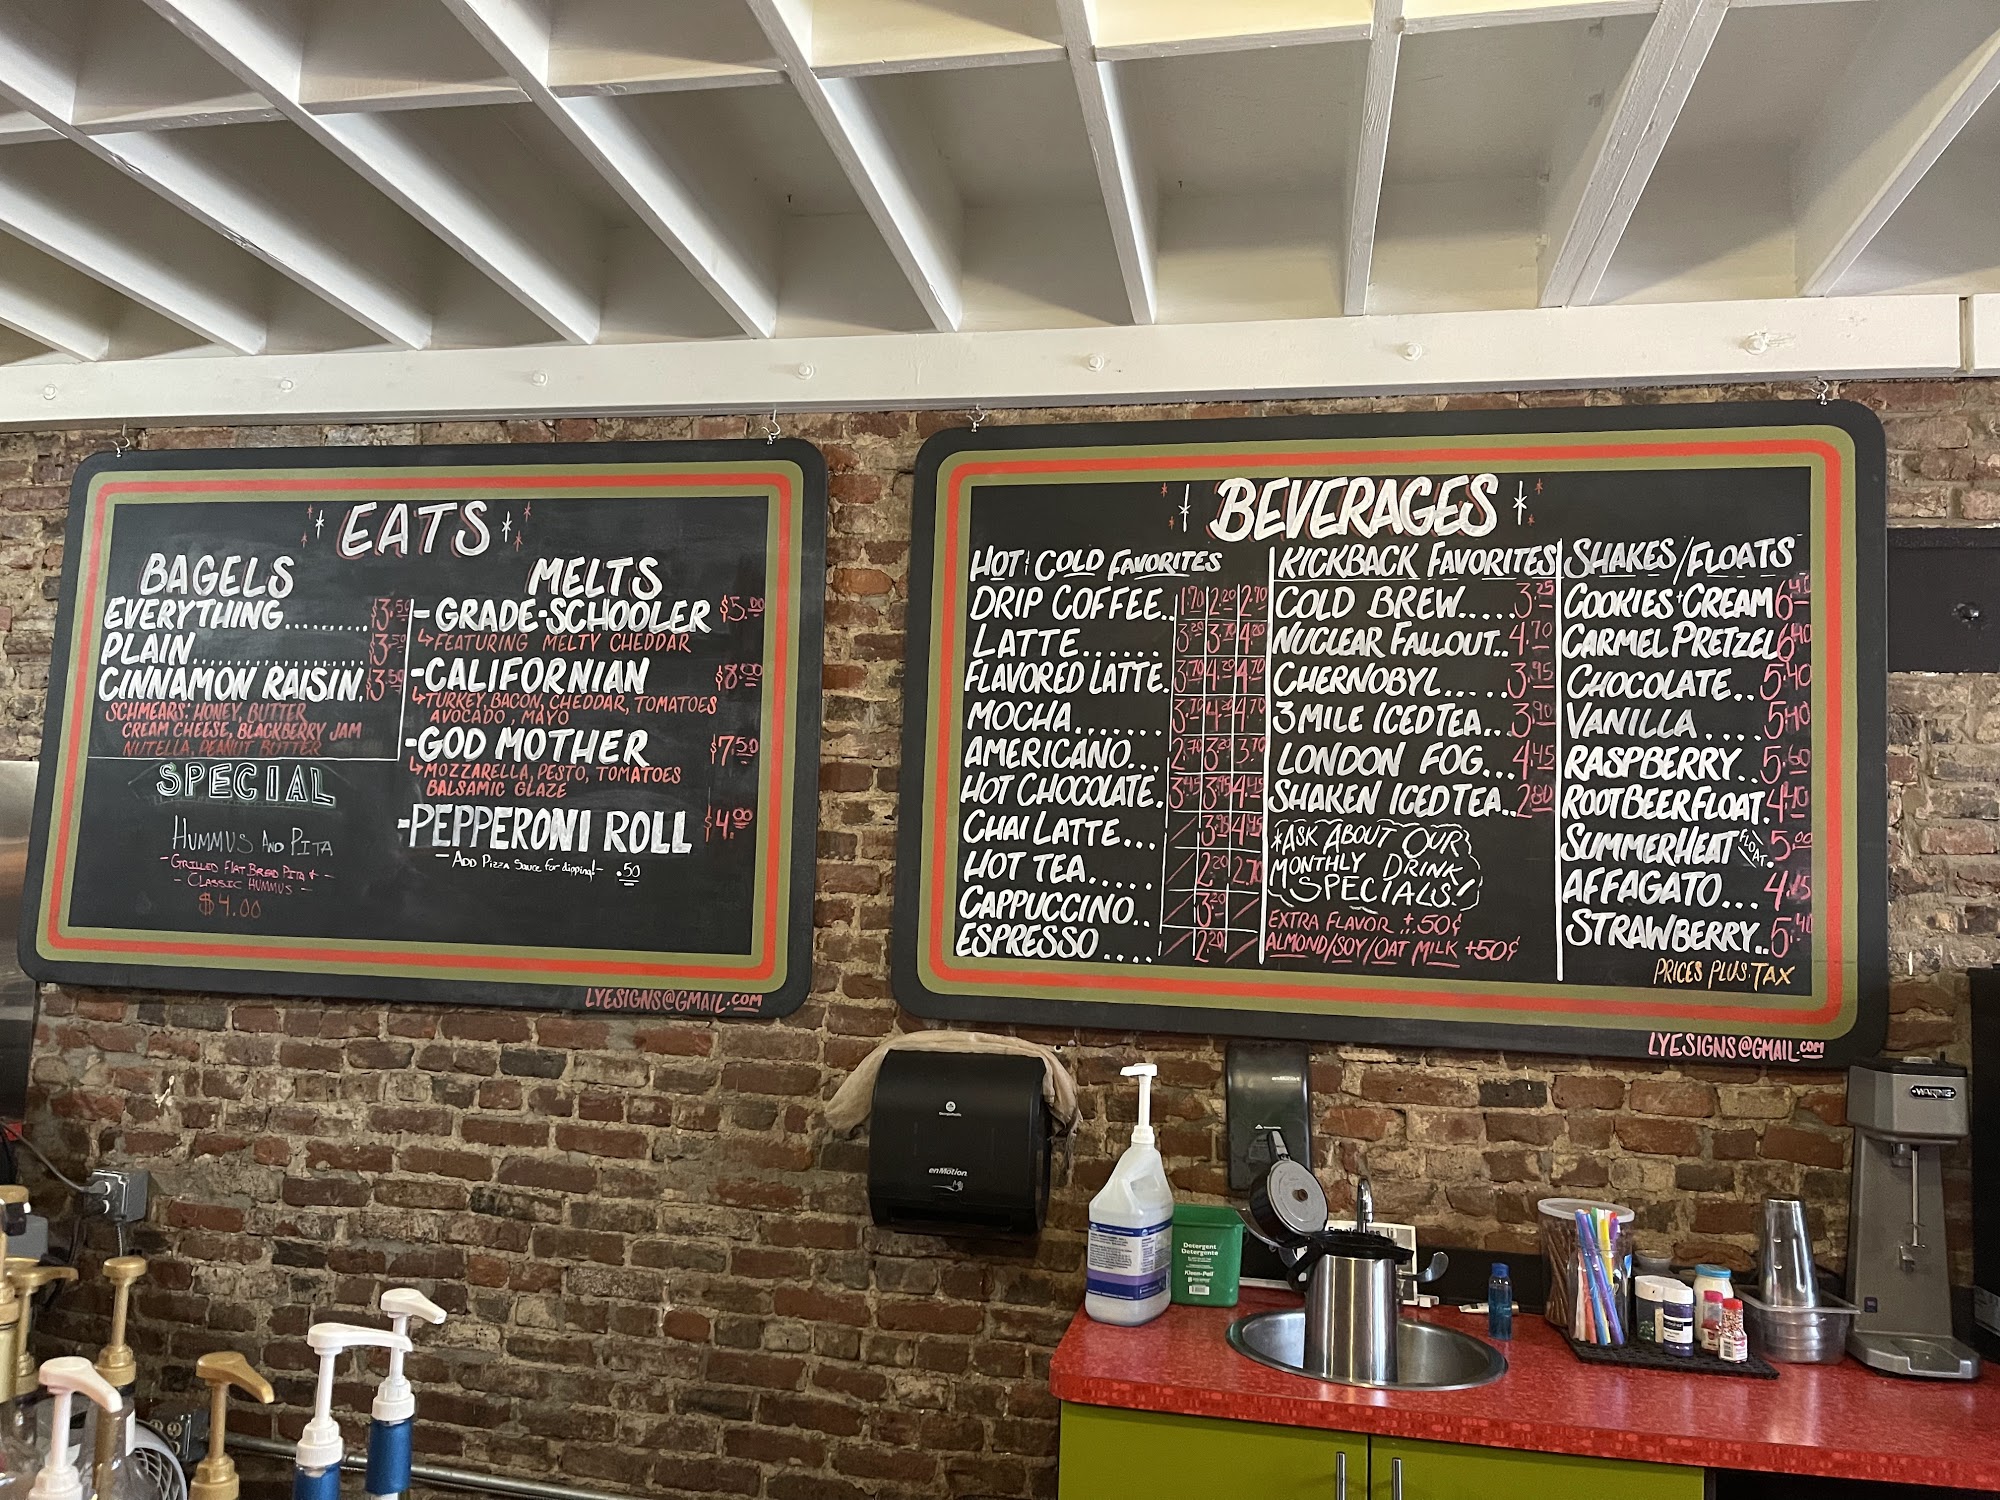 EATS
BAGELS
EVERYTHING......... $3.50
PLAIN.................. $3.50
CINNAMON RAISIN. $3.50
SCHMEARS: HONEY, BUTTER
CREAM CHEESE, BLACKBERRY JAM
NUTELLA, PEANUT BUTTER
SPECIAL
HUMMUS AND PITA
- GRILLED FLAT BREAD PITA + -
- CLASSIC HUMMUS -
$4.00
MELTS
- GRADE-SCHOOLER $5.00
↳ FEATURING MELTY CHEDDAR
- CALIFORNIAN $8.00
↳ TURKEY, BACON, CHEDDAR, TOMATOES
AVOCADO, MAYO
- GOD MOTHER $7.50
↳ MOZZARELLA, PESTO, TOMATOES
BALSAMIC GLAZE
- PEPPERONI ROLL $4.00
- ADD PIZZA Sauce for dipping! - .50
LYESIGNS@GMAIL.COM
BEVERAGES
HOT + COLD FAVORITES
DRIP COFFEE.. 1.70 2.20 2.70
LATTE...... 3.20 3.70 4.20
FLAVORED LATTE. 3.70 4.20 4.70
MOCHA....... 3.70 4.20 4.70
AMERICANO... 2.70 3.20 3.70
HOT CHOCOLATE. 3.45 3.95 4.45
CHAI LATTE... / 3.95 4.45
HOT TEA..... / 2.20 2.70
CAPPUCCINO.. / 3.20 /
ESPRESSO .... / 2.20 /
KICKBACK FAVORITES
COLD BREW..... 3.25
NUCLEAR FALLOUT.. 4.70
CHERNOBYL..... 3.95
3 MILE ICED TEA.. 3.90
LONDON FOG... 4.45
SHAKEN ICED TEA.. 2.80
*ASK ABOUT OUR
MONTHLY DRINK
SPECIALS!
EXTRA FLAVOR +.50¢
ALMOND/SOY/OAT MILK +50¢
SHAKES/FLOATS
COOKIES + CREAM 6.40
CARMEL PRETZEL 6.40
CHOCOLATE.. 5.40
VANILLA .... 5.40
RASPBERRY.. 5.60
ROOT BEER FLOAT. 4.40
SUMMER HEAT FLOAT. 5.00
AFFAGATO... 4.45
STRAWBERRY.. 5.40
PRICES PLUS TAX
LYESIGNS@GMAIL.COM
WARING
enMotion
Detergent
Detergente
Kleen-Pail